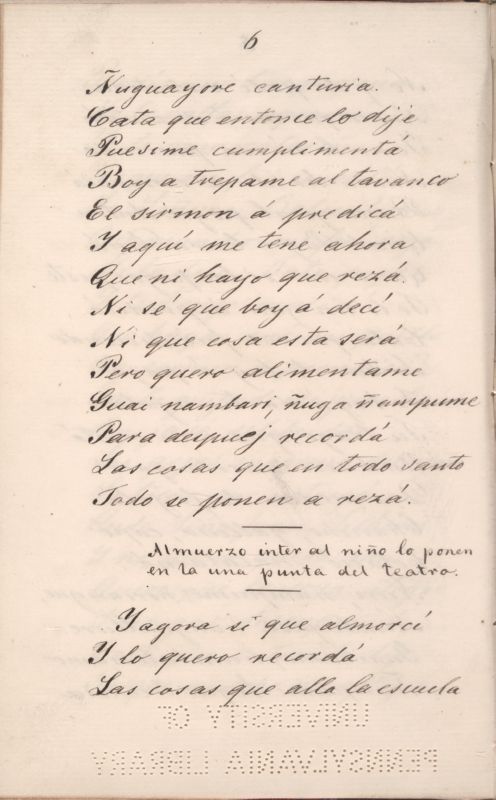 6
Ñuguayore canturia.
Cata que entonce lo dije
Puesime cumplimentá
Boy a trepame al tavanco
El sirmon á predicá
Y aquí me tene ahora
Que ni hayo que rezá.
Ni sé que boy á decí
Ni que cosa esta será
Pero quero alimentame
Guai nambari, ñuga ñampume
Para despuej recordá
Las cosas que en todo santo
Todo se ponen a rezá.
Almuerzo inter al niño lo ponen
en la una punta del teatro.
Yagora si que almorcí
Y lo quero recordá
Las cosas que alla la escuela
UNIVERSITY OF
PENNSYLVANIA LIBRARY